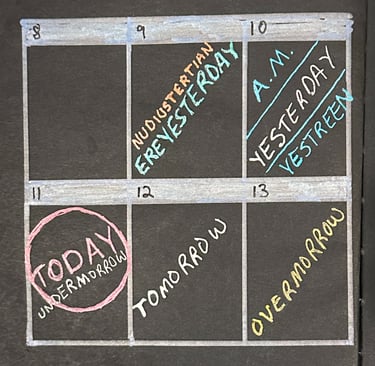 8 9 10
NUDIUSTERTIAN
EREYESTERDAY
A.M.
YESTERDAY
YESTREEN
11 12 13
TODAY
UNDERMORROW
TOMORROW
OVERMORROW